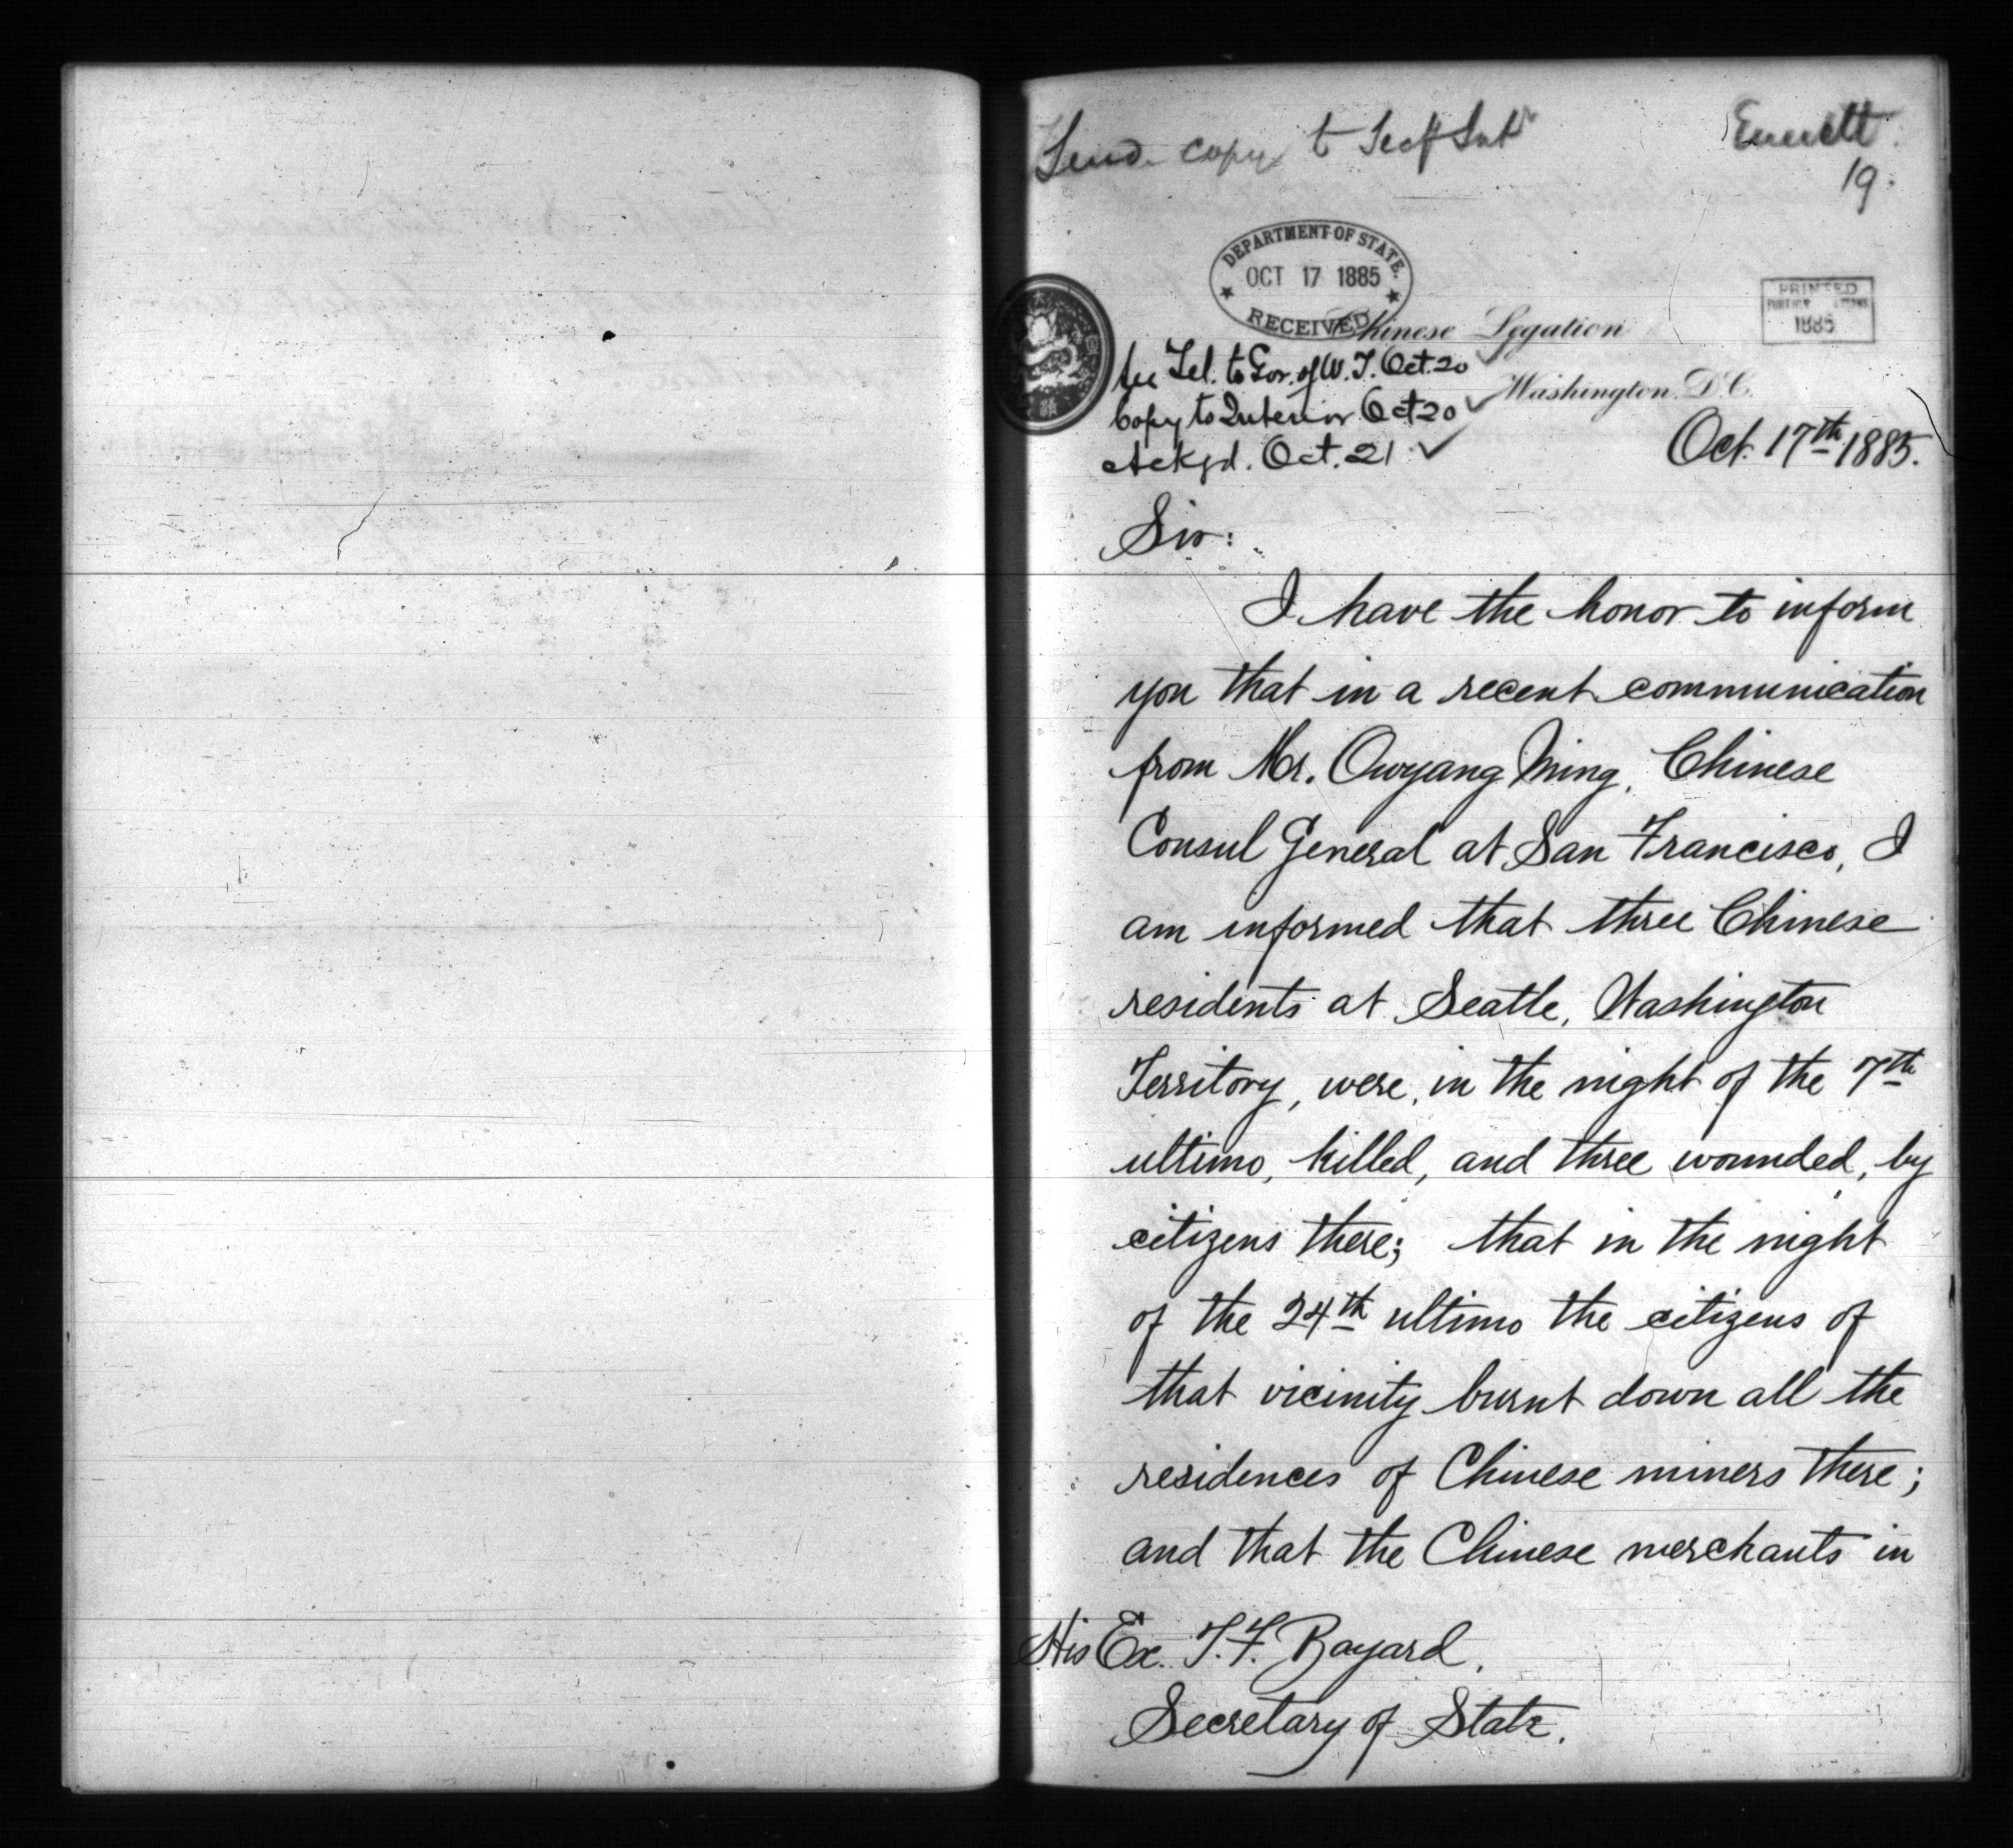 Send copy to Sec of Intr
Everett
19.
DEPARTMENT OF STATE.
OCT 17 1885
RECEIVED
PRINTED
1885
Chinese Legation
See Tel. to Gov. of W. T. Oct. 20
Washington, D.C.
Copy to Interior Oct 20
Ackgd. Oct. 21
Oct. 17th 1885.
Sir:
I have the honor to inform
you that in a recent communication
from Mr. Owyang Ming, Chinese
Consul General at San Francisco, I
am informed that three Chinese
residents at Seatle, Washington
Territory, were, in the night of the 7th
ultimo, killed, and three wounded, by
citizens there; that in the night
of the 24th ultimo the citizens of
that vicinity burnt down all the
residences of Chinese miners there;
and that the Chinese merchants in
His Ex. T. F. Bayard,
Secretary of State.